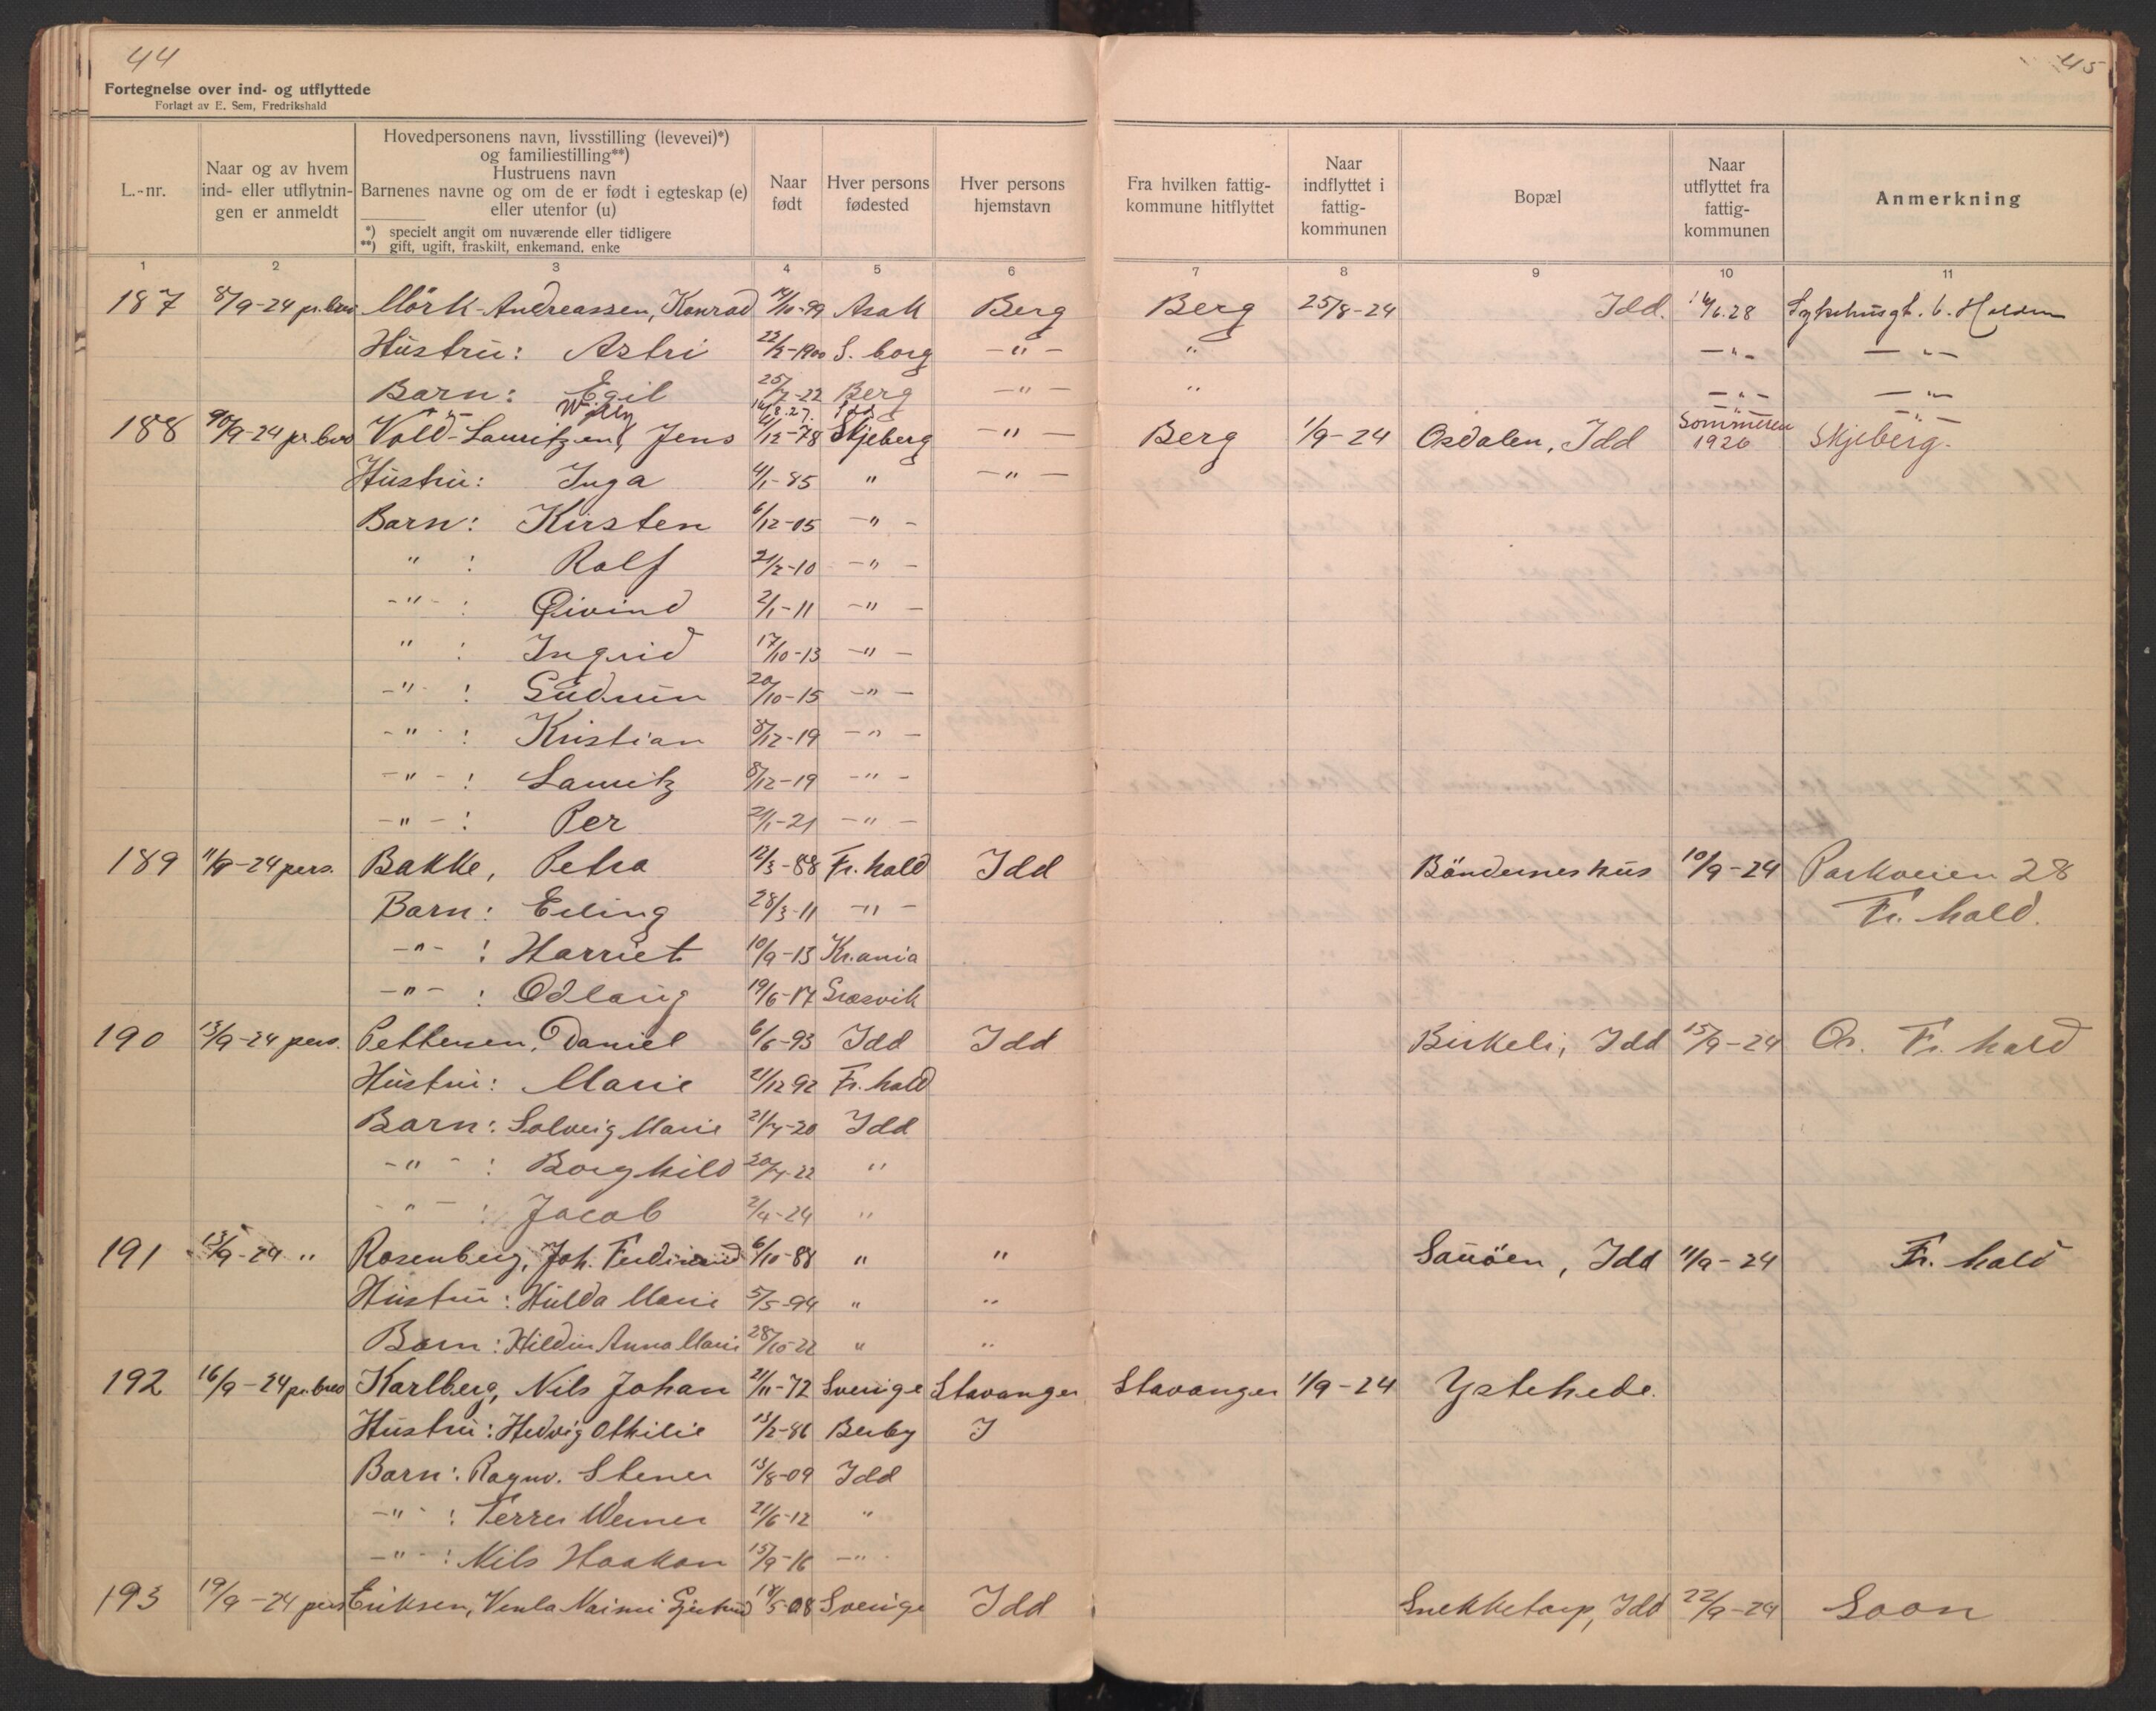 44
45
Fortegnelse over ind- og utflyttede
Forlagt av E. Sem, Fredrikshald
L.-nr.
Naar og av hvem ind- eller utflytnin- gen er anmeldt
Hovedpersonens navn, livsstilling (levevei)*)
og familiestilling**)
Hustruens navn
Barnenes navne og om de er født i egteskap (e)
eller utenfor (u)
*) specielt angit om nuværende eller tidligere
**) gift, ugift, fraskilt, enkemand, enke
Naar født
Hver persons fødested
Hver persons hjemstavn
Fra hvilken fattig- kommune hitflyttet
Naar indflyttet i fattig- kommunen
Bopæl
Naar utflyttet fra fattig- kommunen
Anmerkning
1 2 3 4 5 6 7 8 9 10 11
187 8/9-24 pr. brev Mörk-Andreassen, Konrad 14/10-99 Asak Berg Berg 25/8-24 Idd. 14/6.28 Sykehusgt. 6. Halden
Hustru: Astri 22/2-1900 S. borg -"- " -"- -"-
Barn: Egil 25/7-22 Berg -"- " -"- -"-
Willy 14/8.27. Idd -"- -"-
188 10/9-24 pr. brev Vold-Lauritzen, Jens 4/12-78 Skjeberg -"- Berg 1/9-24 Osdalen, Idd Sommeren 1926 Skjeberg.
Hustru: Inga 4/1-85 " -"-
Barn: Kirsten 6/12-05 -"-
" : Rolf 21/2-10 -"-
-"- : Øivind 2/1-11 -"-
" : Ingrid 17/10-13 -"-
-"- : Gudrun 20/10-15 -"-
-"- : Kristian 8/12-19 -"-
-"- : Lauritz 8/12-19 -"-
-"- : Per 21/1-21 -"-
189 11/9-24 pers. Bakke, Petra 12/3-88 Fr. hald Idd Bönderneshus 10/9-24 Parkveien 28
Barn: Erling 28/3-11 -"- Fr. hald.
-"- : Harriet 10/9-13 Kr.ania
-"- : Odlaug 19/6-17 Græsvik
190 13/9-24 pers. Pettersen, Daniel 6/6-93 Idd Idd Birkeli, Idd 15/9-24 Os. Fr. hald
Hustru: Marie 21/12 92 Fr. hald
Barn: Solveig Marie 21/7-20 Idd
-"- : Borghild 20/7-22 "
-"- : Jacob 2/4-24 "
191 13/9-24 " Rosenberg, Joh. Ferdinand 6/10-88 " " Sauöen, Idd 11/9-24 Fr. hald
Hustru: Hulda Marie 5/5-94 " "
Barn: Hildur Anna Marie 28/10-22 " "
192 16/9-24 pr. brev Karlberg, Nils Johan 21/11-72 Sverige Stavanger Stavanger 1/9-24 Ystehede.
Hustru: Hedvig Othilie 13/2-86 Berby I
Barn: Ragnv. Stener 13/8-09 Idd
-"- : Verner 21/6-12 "
-"- : Nils Haakon 15/9-16 -"-
193 19/9-24 pers Eriksen, Venla Naimi Gjertrud 18/5-08 Sverige Idd Snekketorp, Idd 22/9-24 Soon